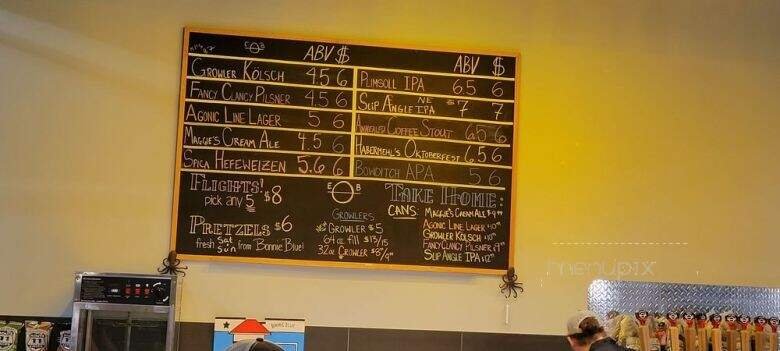 ABV $
ABV $
GROWLER KÖLSCH 4.5 6
FANCY CLANCY PILSNER 4.5 6
AGONIC LINE LAGER 5 6
MAGGIE'S CREAM ALE 4.5 6
SPICA HEFEWEIZEN 5.6 6
PLIMSOLL IPA 6.5 6
SLIP ANGLE NE IPA 7 7
ANNEALED COFFEE STOUT 6.5 6
HABERMEHL'S OKTOBERFEST 6.5 6
BOWDITCH APA 5 6
FLIGHTS!
pick any 5 $8
PRETZELS $6
fresh Sat Sun from Bonnie Blue!
E B
GROWLERS
GROWLER $5
64oz fill $13/15
32oz GROWLER $8/9
TAKE HOME:
CANS: MAGGIE'S CREAM ALE $9
AGONIC LINE LAGER $10
GROWLER KÖLSCH $10
FANCY CLANCY PILSNER $9
SLIP ANGLE IPA $12
menupix